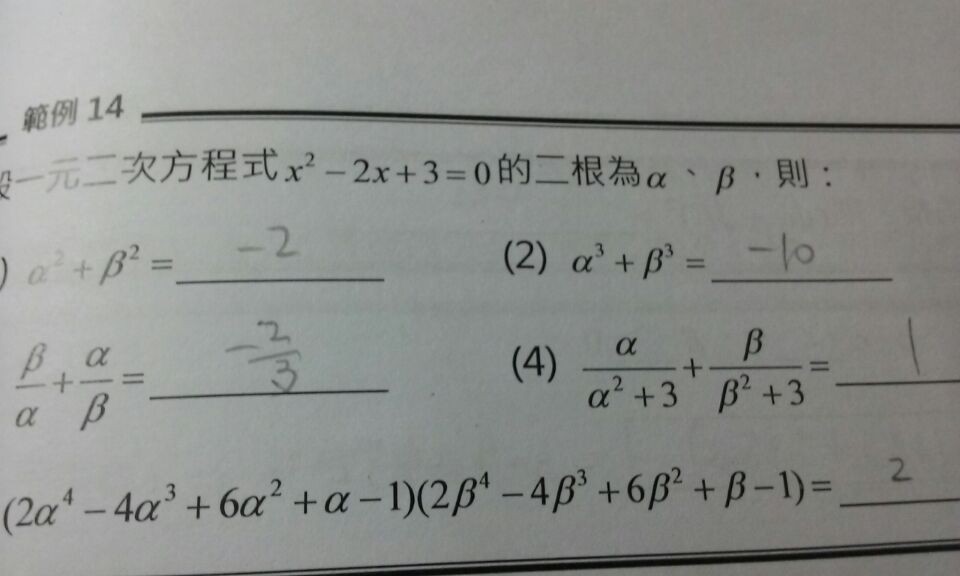 範例 14
設一元二次方程式 x² − 2x + 3 = 0 的二根為 α 、 β ，則：
) α² + β² = −2 (2) α³ + β³ = −10
β/α + α/β = −2/3 (4) α/(α² + 3) + β/(β² + 3) = 1
(2α⁴ − 4α³ + 6α² + α − 1)(2β⁴ − 4β³ + 6β² + β − 1) = 2